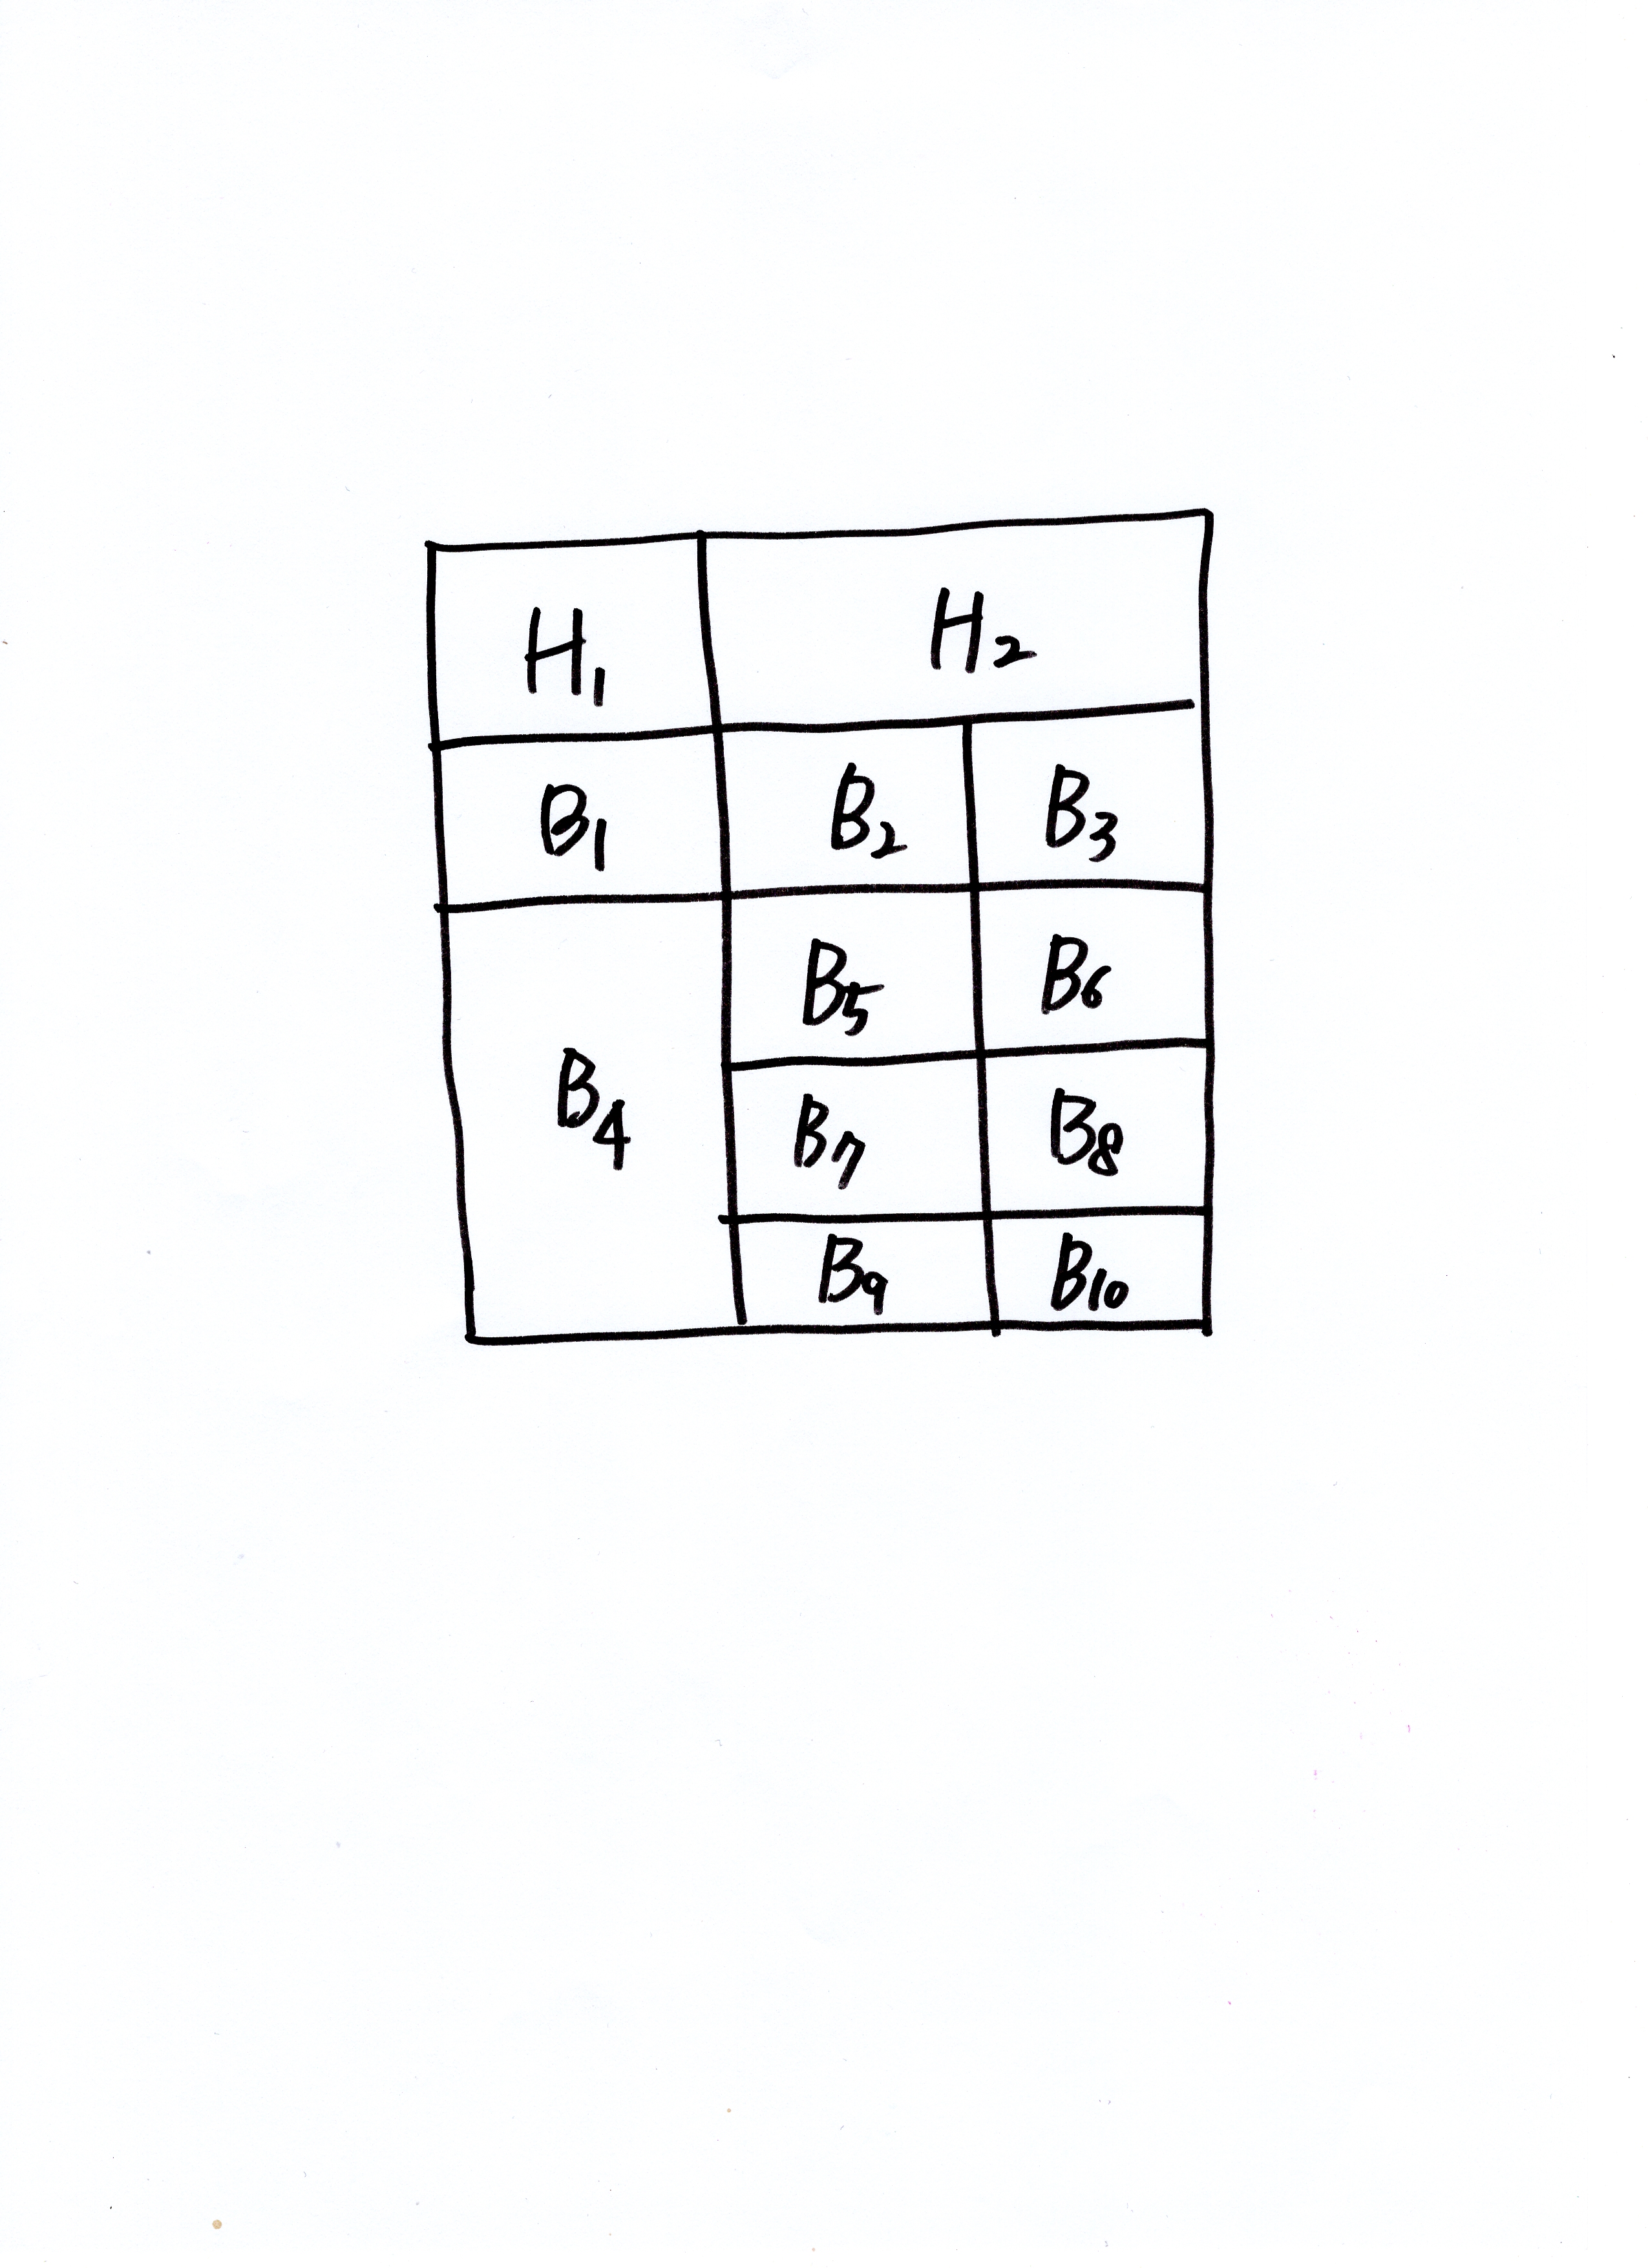 H₁ H₂
B₁ B₂ B₃
B₅ B₆
B₄
B₇ B₈
B₉ B₁₀